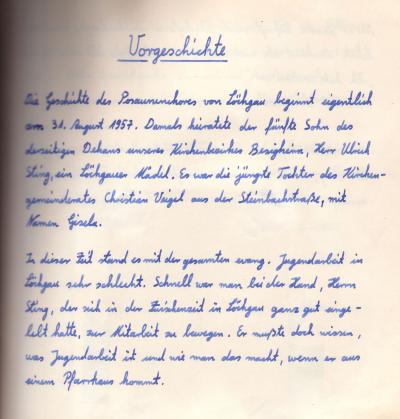 Vorgeschichte
Die Geschichte des Posaunenchores von Löchgau beginnt eigentlich
am 31. August 1957. Damals heiratete der fünfte Sohn des
derzeitigen Dekans unseres Kirchenbezirkes Besigheim, Herr Ulrich
Sting, ein Löchgauer Mädel. Es war die jüngste Tochter des Kirchen-
gemeinderates Christian Veigel aus der Steinbachstraße, mit
Namen Gisela.
In dieser Zeit stand es mit der gesamten evang. Jugendarbeit in
Löchgau sehr schlecht. Schnell war man bei der Hand, Herrn
Sting, der sich in der Zwischenzeit in Löchgau ganz gut einge-
lebt hatte, zur Mitarbeit zu bewegen. Er mußte doch wissen,
was Jugendarbeit ist und wie man das macht, wenn er aus
einem Pfarrhaus kommt.